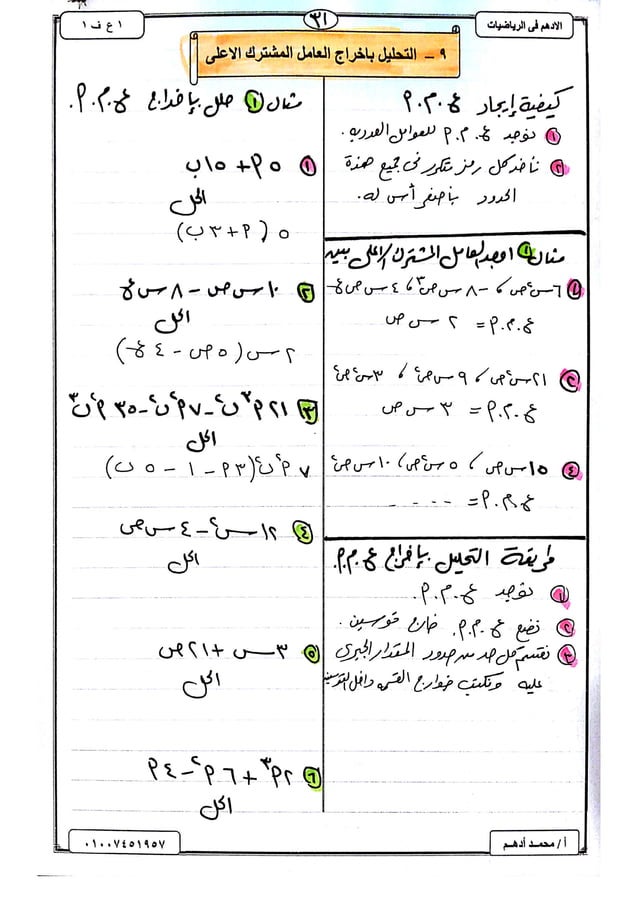 الادهم فى الرياضيات
٣١
١ ع ف ١
٩ – التحليل باخراج العامل المشترك الاعلى
كيفية إيجاد ع.م.م
١ نوجد ع.م.م للعوامل العددية.
٢ نأخذ كل رمز متكرر فى جميع هذة
الحدود بأصغر أس له.
مثال ١ اوجد العامل المشترك الاعلى بين
١ ٦س٢ص ، -٨س ص٣ ، ٤س ص ع
ع.م.م = ٢ س ص
٢ ٢١س٢ص ، ٩س ص٢ ، ٣س٢ص٢
ع.م.م = ٣ س ص
٤ ١٥س ص ، ٥س٢ص ، ١٠س ص٢
ع.م.م = - - - -
طريقة التحليل بإخراج ع.م.م.
١ نوجد ع.م.م.
٢ نضع ع.م.م. خارج قوسين.
٣ نقسم كل حد من حدود المقدار الجبرى
عليه ونكتب خوارج القسمة داخل القوسين
مثال ١ حلل بإخراج ع.م.م.
١ ٥م + ١٥ب
الحل
٥ (م + ٣ب)
٢ ١٠س ص - ٨س ع
الحل
٢س (٥ص - ٤ع)
٣ ٢١م٣ن٢ - ٧م٢ن٢ - ٣٥م٢ن٣
الحل
٧م٢ن٢(٣م - ١ - ٥ن)
٤ ١٢س٢ - ٤س ص
الحل
٥ ٣س + ٢١ص
الحل
٦ ٢م٣ + ٦م٢ - ٤م
الحل
أ / محمد أدهم
٠١٠٠٧٤٥١٩٥٧